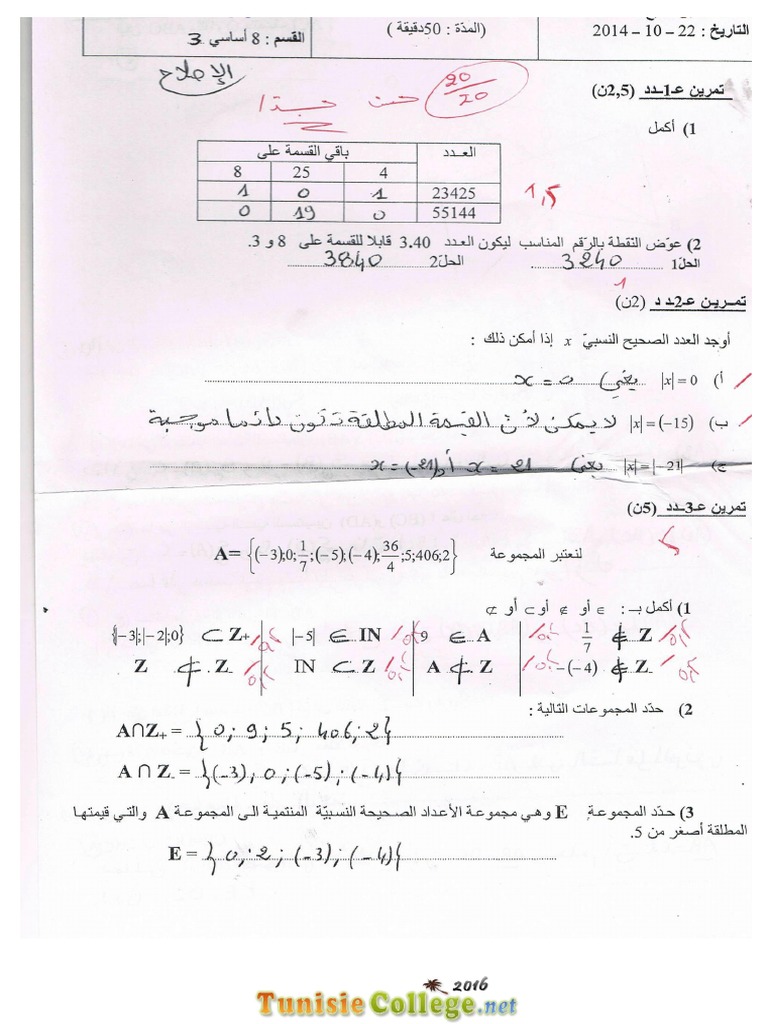 التاريخ : 22 – 10 – 2014 (المدّة : 50دقيقة ) القسم : 8 أساسي 3
الإصلاح
20/20 حسن جدّا
تمرين عـ1ـدد (2,5ن)
1) أكمل
العـدد باقي القسمة على
4 25 8
23425 1 0 1
55144 0 19 0
1,5
2) عوّض النقطة بالرّقم المناسب ليكون العدد 3.40 قابلا للقسمة على 8 و 3.
الحل1 3240 الحل2 3840
1
تمـريـن عـ2ـدد (2ن)
أوجد العدد الصحيح النسبيّ x إذا أمكن ذلك :
أ) |x| = 0 يعني x = 0
ب) |x| = (−15) لا يمكن لأنّ القيمة المطلقة تكون دائما موجبة
ج) |x| = |−21| يعني x = 21 أو x = (-21)
تمرين عـ3ـدد (5ن)
لنعتبر المجموعة A= {(−3);0;1/7;(−5);(−4);36/4;5;406;2}
1) أكمل بـ: ∈ أو ∉ أو ⊂ أو ⊄
{|−3|;|−2|;0} ⊂ Z+ |−5| ∈ IN 9 ∈ A 1/7 ∉ Z
Z ⊄ Z- IN ⊂ Z A ⊄ Z −(−4) ∉ Z-
2) حدّد المجموعات التالية :
A∩Z+ = {0 ; 9 ; 5 ; 406 ; 2}
A ∩ Z- = {(-3), 0 ; (-5) ; (-4)}
3) حدّد المجموعة E وهي مجموعة الأعداد الصحيحة النسبيّة المنتمية الى المجموعة A والتي قيمتها
المطلقة أصغر من 5.
E = {0 ; 2 ; (-3) ; (-4)}
2016
TunisieCollege.net